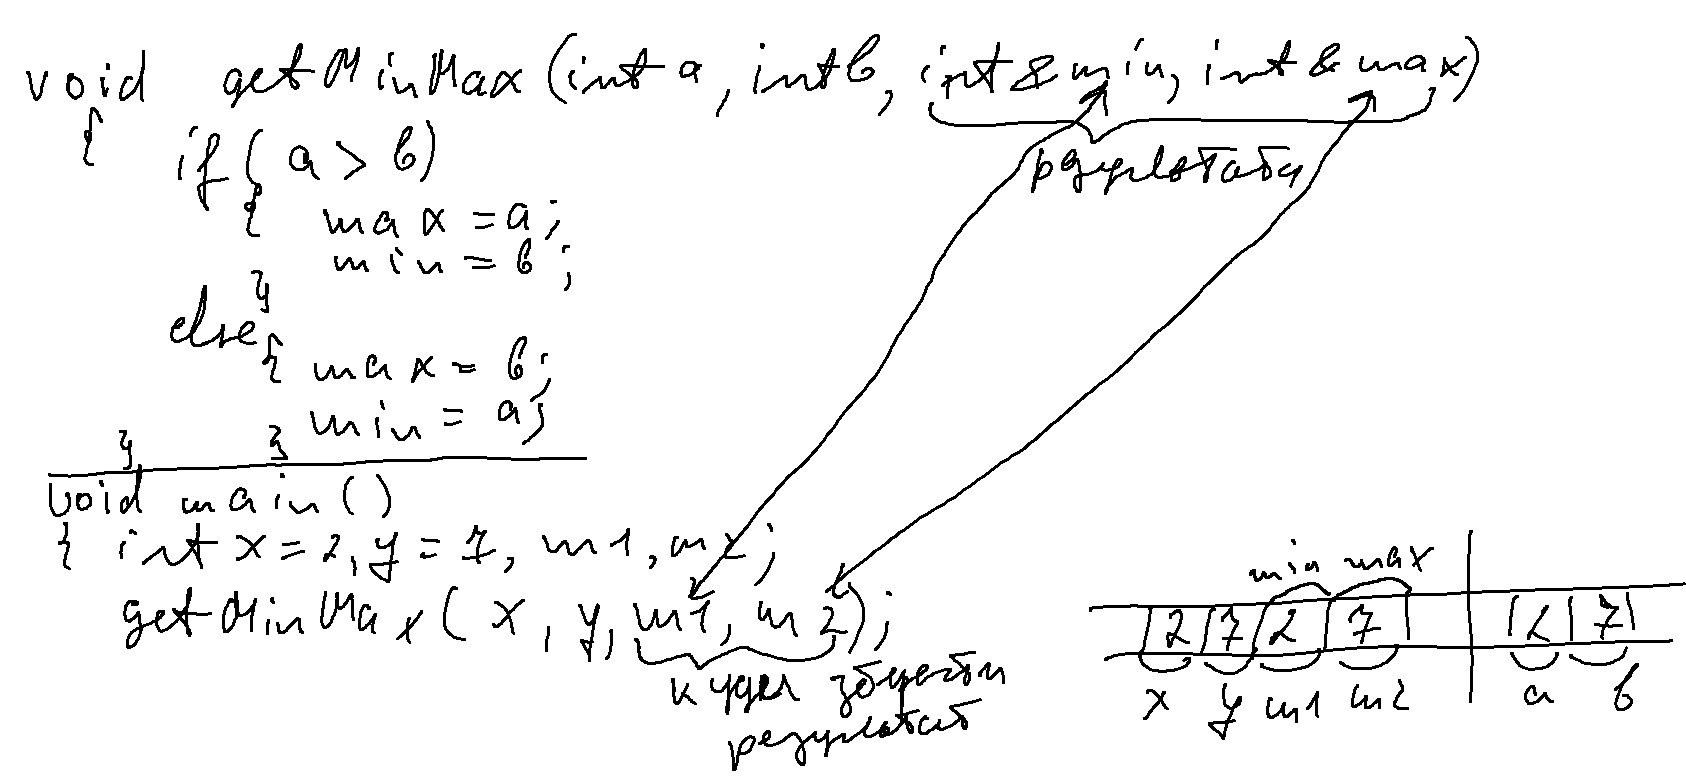 void getMinMax (int a, int b, int & min, int & max)
{
if ( a > b)
{ max = a;
min = b;
}
else
{ max = b;
min = a;
}
}
результати
void main ()
{ int x = 2, y = 7, m1, m2;
getMinMax ( x, y, m1, m2);
куди зберегти
результат
min max
2 7 2 7 2 7
x y m1 m2 a b